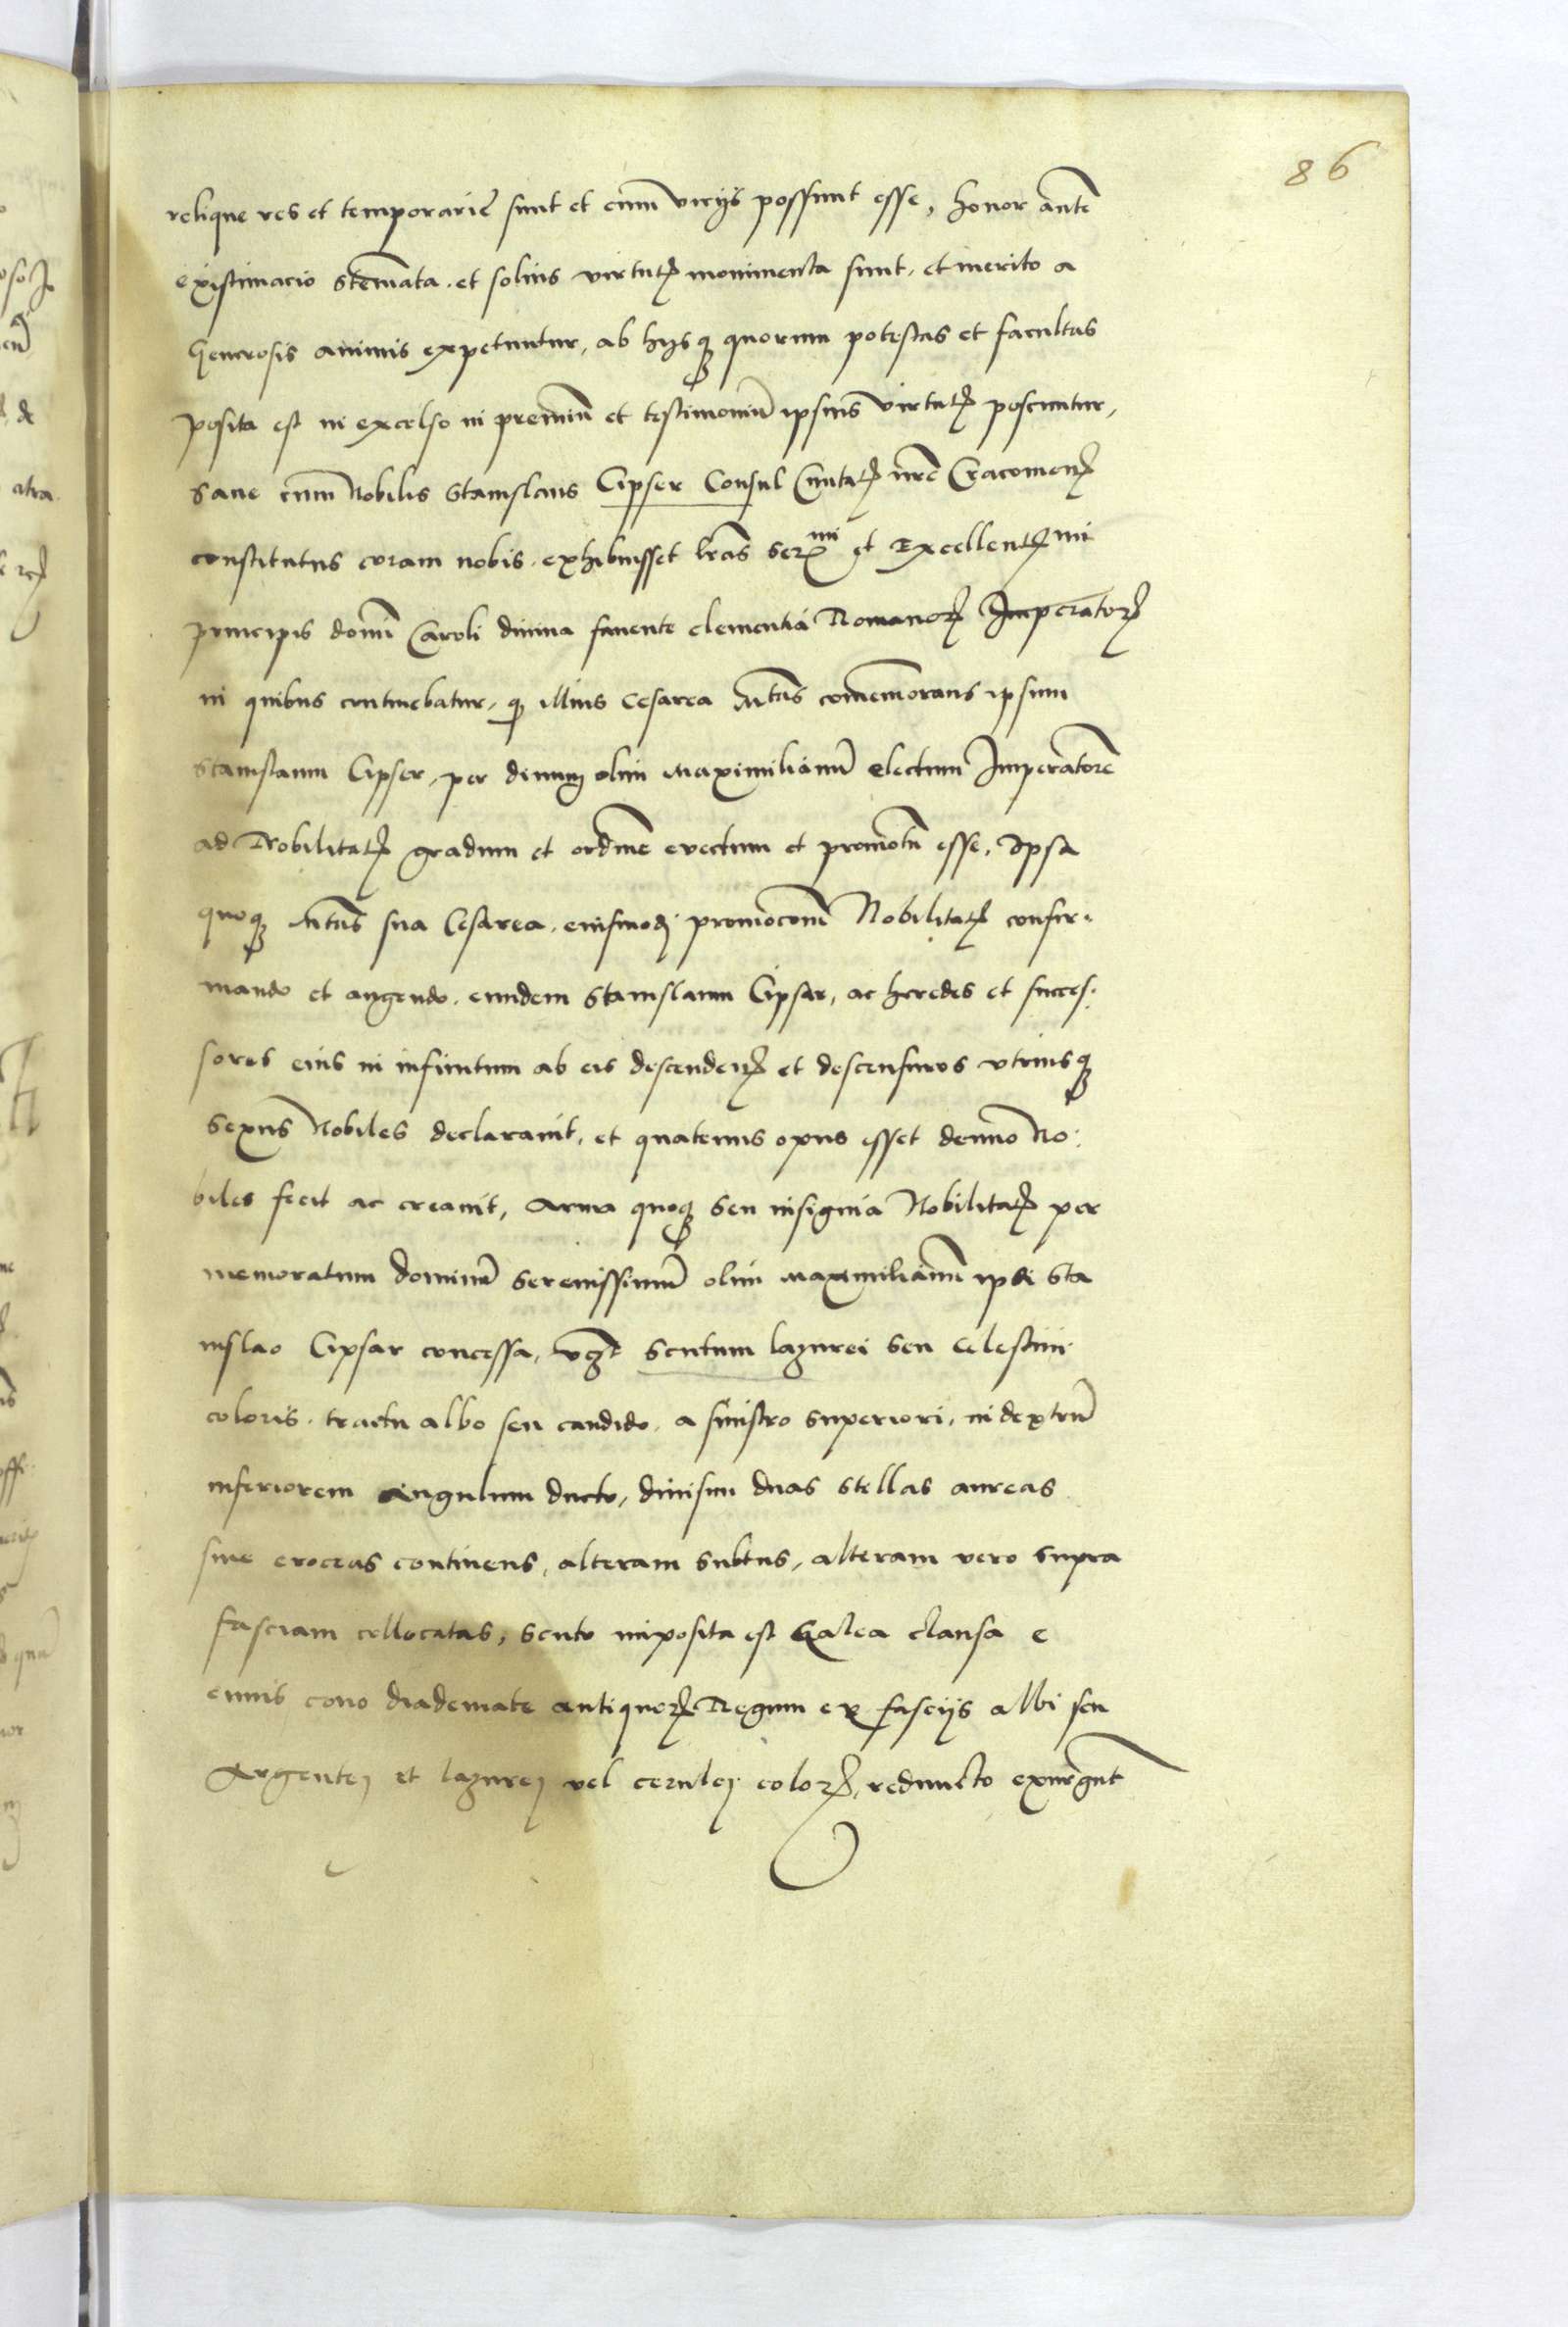 86
relique res et temporarie sunt et cum vicijs possunt esse, honor autē
existimacio stemata. et solius virtutꝭ monimenta sunt, et merito a
Generosis animis expetuntur, ab hijsqꝫ quorum potestas et facultas
posita est in excelso in premiū et testimoniū ipsius virtutꝭ poscuntur,
Sane cum Nobilis Stanislaus Cipser Consul Ciuitatꝭ nr̄e Cracouienꝭ
constitutus coram nobis. exhibuisset lr̄as Ser̄mi et Excellentꝭmi
principis domī Caroli diuina fauente clementia Romanorꝭ Imperatorꝭ
in quibus continebatur, qꝫ illius Cesarea Mtas com̄emorans ipsum
Stanislaum Cipser, per diuum olim Maximilianū electum Imperatorē
ad Nobilitatꝭ gradum et ordinē euectum et promotū esse, Ipsa
quoqꝫ Mtas sua Cesarea. eiusmodi promocōnē Nobilitatꝭ confir-
mando et augendo. eundem Stanislaum Cipsar, ac heredes et succes-
sores eius in infinitum ab eis descendenꝭ et descensuros vtriusqꝫ
sexus Nobiles declarauit, et quatenus opus esset denuo No-
biles fecit ac creauit, Arma quoqꝫ seu insignia Nobilitatꝭ per
memoratum dominū Serenissimū olim Maximilianum ipsi Sta
nislao Cipsar concessa, vꝫt Scutum lazurei seu Celestini
coloris. tractu albo seu candido. a sinistro superiori, in dextrū
inferiorem angulum ducto, diuisum duas stellas aureas
siue croceas continens, alteram subtus, alteram vero supra
fasciam collocatas, Scuto imposita est Galea clausa e
cuius cono diademate antiquorꝭ Regum ex fascijs albi seu
Argentej et lazurej vel cerulej colorꝭ, reduncto exurgūt